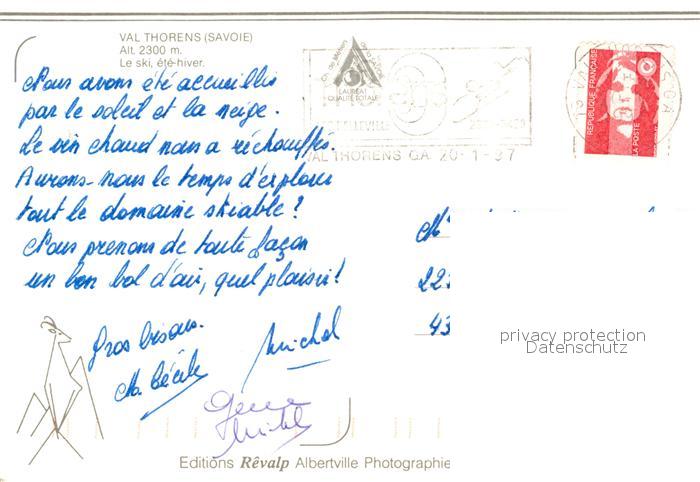 VAL THORENS (SAVOIE)
Alt. 2300 m.
Le ski, été-hiver.
Nous avons été accueillis
par le soleil et la neige.
Le vin chaud nous a réchauffés.
Aurons-nous le temps d'explorer
tout le domaine skiable ?
Nous prenons de toute façon
un bon bol d'air, quel plaisir !
Gros bisous.
M. Cécile
Michel
LAUREAT
QUALITE TOTALE
VAL THORENS GA 20-1-97
REPUBLIQUE FRANÇAISE
LA POSTE
22
43
privacy protection
Datenschutz
Editions Rêvalp Albertville Photographie